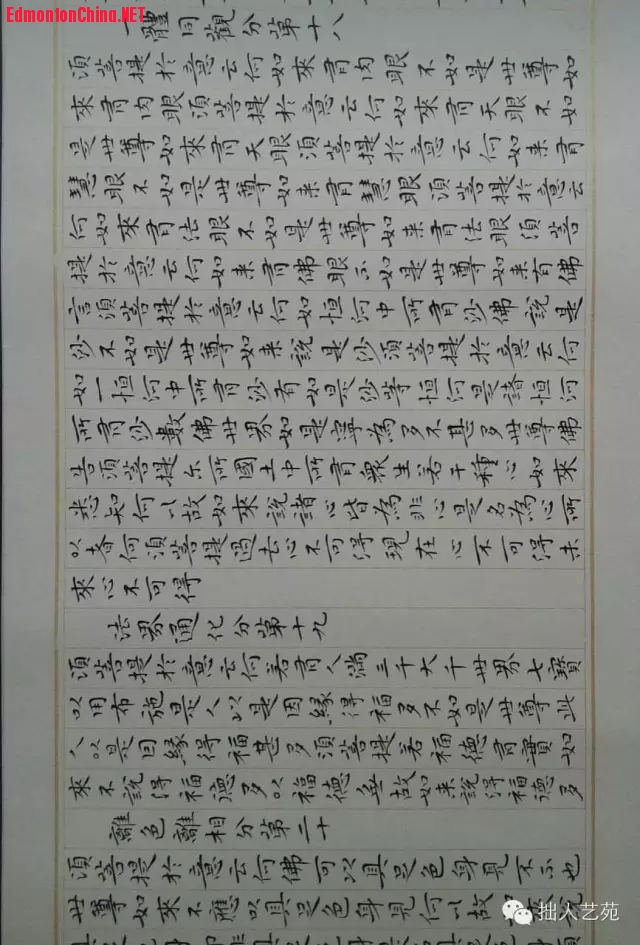 EdmontonChina.NET
一體同觀分第十八
須菩提於意云何如來有肉眼不如是世尊如
來有肉眼須菩提於意云何如來有天眼不如
是世尊如來有天眼須菩提於意云何如来有
慧眼不如是世尊如来有慧眼須菩提於意云
何如來有法眼不如是世尊如来有法眼須菩
提於意云何如来有佛眼不如是世尊如来有佛
言須菩提於意云何如恒河中所有沙佛說是
沙不如是世尊如来說是沙須菩提於意云何
如一恒河中所有沙有如是沙等恒河是諸恒河
所有沙數佛世界如是寧為多不甚多世尊佛
告須菩提尔所國土中所有衆生若干種心如來
悉知何以故如來說諸心皆為非心是名為心所
以者何須菩提過去心不可得現在心不可得未
來心不可得
法界通化分第十九
須菩提於意云何若有人滿三千大千世界七寶
以用布施是人以是因緣得福多不如是世尊此
人以是因緣得福甚多須菩提若福德有實如
來不說得福德多以福德無故如来說得福德多
離色離相分第二十
須菩提於意云何佛可以具足色身見不不也
世尊如來不應以具足色身見何以故
拙人艺苑